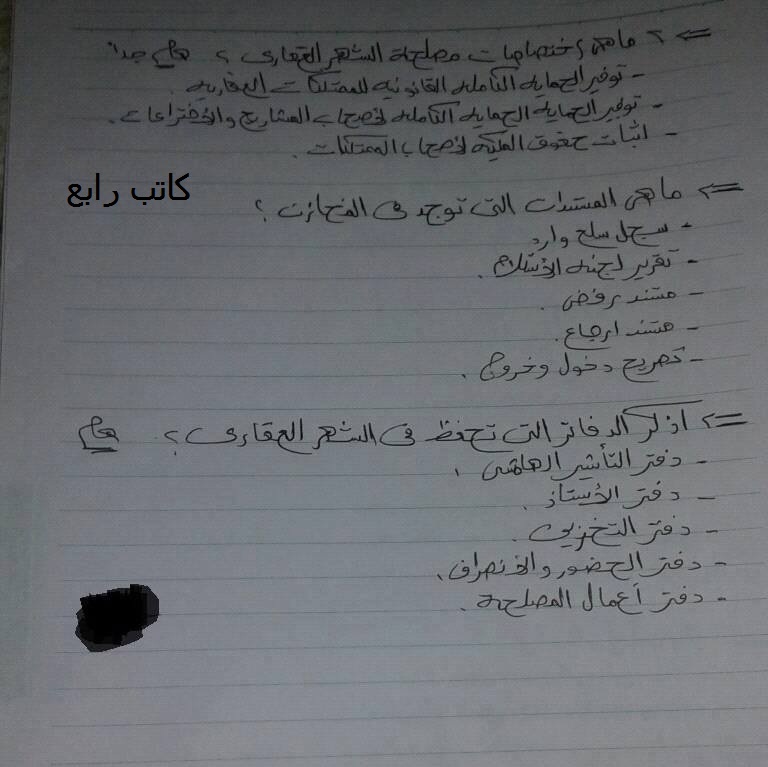 <= ? ما هي اختصاصات مصلحة الشهر العقاري ؟ هام جدا
- توفير الحماية الكاملة القانونية للممتلكات العقارية.
- توفير الحماية الحماية الكاملة لأصحاب المشاريع والاختراعات.
- اثبات حقوق الملكية لأصحاب الممتلكات.
كاتب رابع
<= ? ما هي المستندات التى توجد فى المخازن ؟
- سجل سلع وارد
- تقرير لجنة الأستلام.
- مستند رفض.
- مستند ارجاع.
- تصريح دخول وخروج.
<= ? اذكر الدفاتر التى تحفظ فى الشهر العقارى ؟ هام
- دفتر التأشير الهامشى.
- دفتر الأستاذ.
- دفتر التخزين.
- دفتر الحضور والانصراف.
- دفتر أعمال المصلحة.